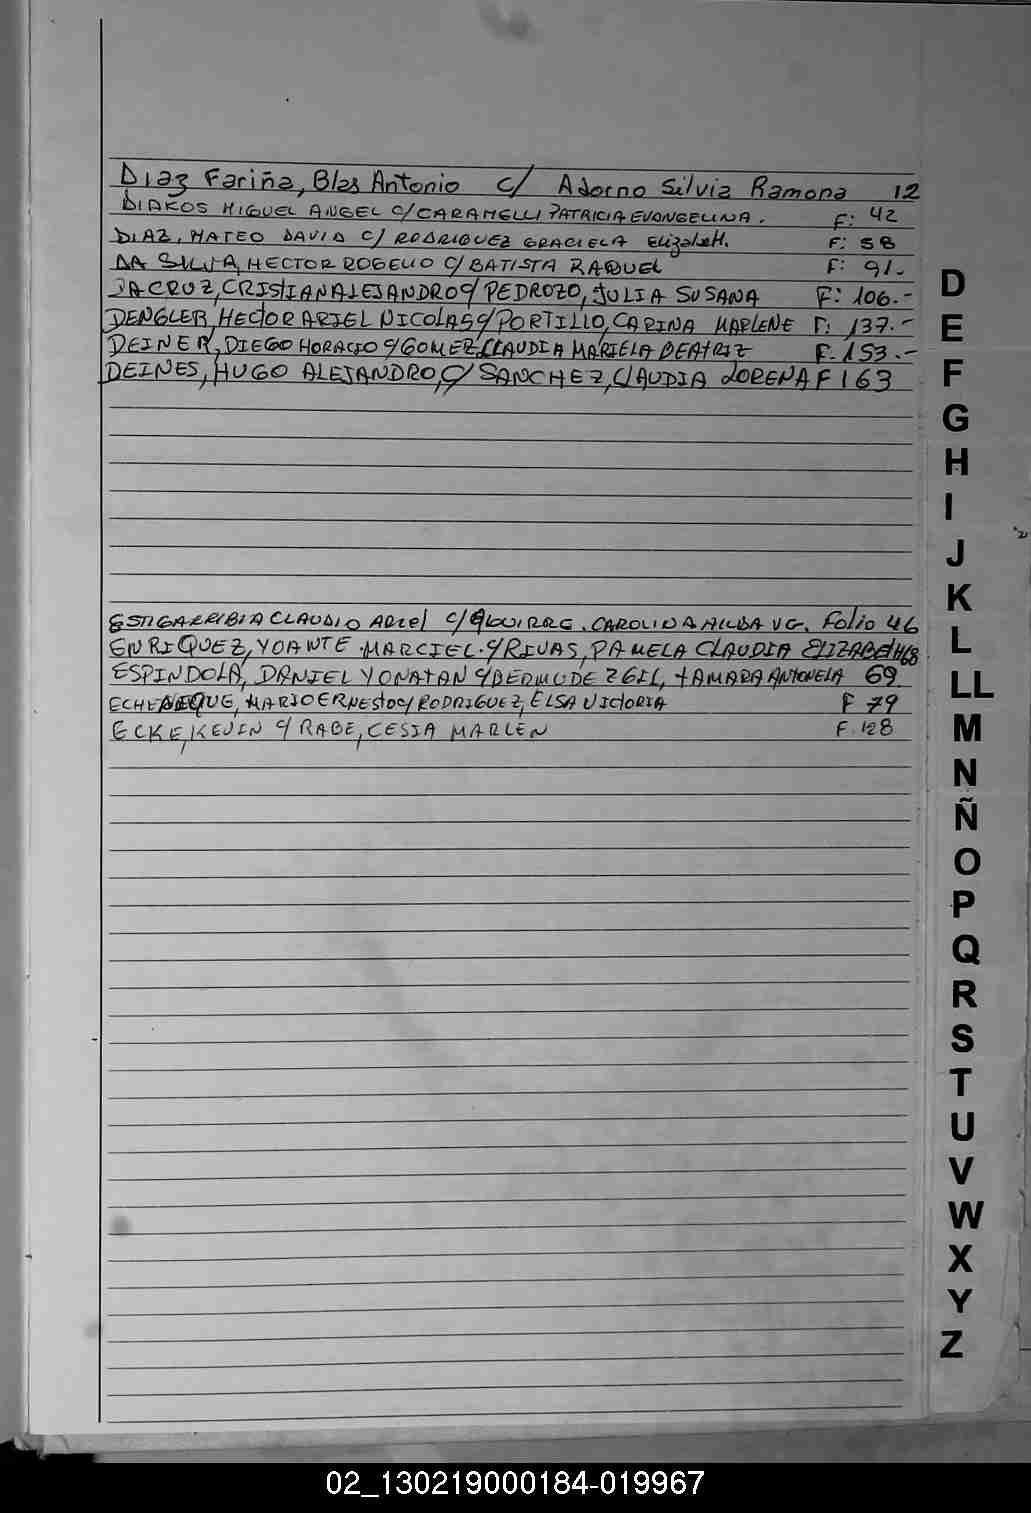 Diaz Fariña, Blas Antonio c/ Adorno Silvia Ramona 12
DIAKOS MIGUEL ANGEL C/CARAMELLI PATRICIA EVANGELINA. F: 42
DIAZ, MATEO DAVID C/ RODRIGUEZ GRACIELA Elizabeth. F: 58
DA SILVA, HECTOR ROGELIO C/BATISTA RAQUEL F: 91.
DACRUZ, CRISTIAN ALEJANDRO C/ PEDROZO, JULIA SUSANA F: 106.-
DENGLER, HECTOR ARIEL NICOLAS C/PORTILLO, CARINA MARLENE F: 137.-
DEINER, DIEGO HORACIO C/GOMEZ, CLAUDIA MARIELA BEATRIZ F. 153.-
DEINES, HUGO ALEJANDRO, C/ SANCHEZ, CLAUDIA LORENA F 163
ESTIGARRIBIA CLAUDIO ARIEL C/ AGUIRRE. CAROLINA Folio 46
ENRIQUEZ, YOANTE MARCIEL. C/RIVAS, PAMELA CLAUDIA ELIZABETH 68
ESPINDOLA, DANIEL YONATAN C/BERMUDEZ GIL, TAMARA ANTONELA 69
MARIO ERNESTO C/ RODRIGUEZ, ELSA VICTORIA F 79
ECKE, KEVIN C/ RABE, CESIA MARLEN F. 128
D
E
F
G
H
I
J
K
L
LL
M
N
Ñ
O
P
Q
R
S
T
U
V
W
X
Y
Z
02_130219000184-019967